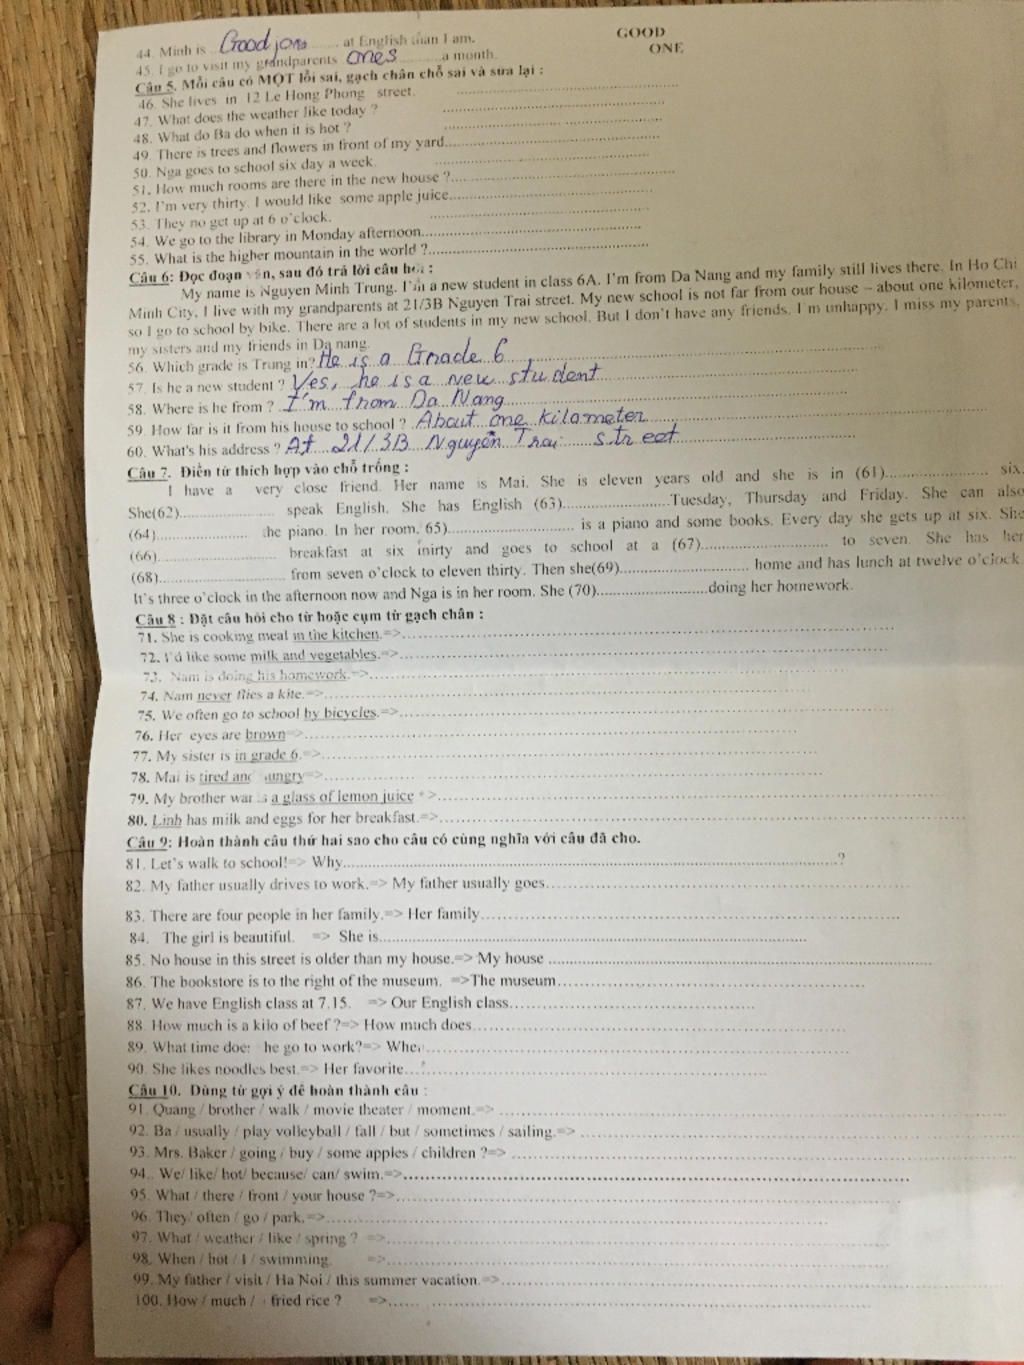 44. Minh is Good jons at English than I am. GOOD
45. I go to visit my grandparents ones a month. ONE
Câu 5. Mỗi câu có MỘT lỗi sai, gạch chân chỗ sai và sửa lại :
46. She lives in 12 Le Hong Phong street.
47. What does the weather like today ?
48. What do Ba do when it is hot ?
49. There is trees and flowers in front of my yard.
50. Nga goes to school six day a week.
51. How much rooms are there in the new house ?
52. I'm very thirty. I would like some apple juice
53. They no get up at 6 o'clock.
54. We go to the library in Monday afternoon
55. What is the higher mountain in the world ?
Câu 6: Đọc đoạn văn, sau đó trả lời câu hỏi :
My name is Nguyen Minh Trung. I'm a new student in class 6A. I'm from Da Nang and my family still lives there. In Ho Chi
Minh City, I live with my grandparents at 21/3B Nguyen Trai street. My new school is not far from our house – about one kilometer,
so I go to school by bike. There are a lot of students in my new school. But I don't have any friends. I'm unhappy. I miss my parents,
my sisters and my friends in Da nang.
56. Which grade is Trung in? He is a Grade 6
57. Is he a new student ? Yes, he is a new student
58. Where is he from ? I'm from Da Nang
59. How far is it from his house to school ? About one kilometer
60. What's his address ? At 21/3B Nguyen Trai street
Câu 7. Điền từ thích hợp vào chỗ trống :
I have a very close friend. Her name is Mai. She is eleven years old and she is in (61).................... six.
She(62).................... speak English. She has English (63).....................Tuesday, Thursday and Friday. She can also
(64).................... he piano. In her room, 65)......................... is a piano and some books. Every day she gets up at six. She
(66)........................ breakfast at six and goes to school at a (67)......................... to seven. She has her
(68)............................ from seven o'clock to eleven thirty. Then she(69)......................... home and has lunch at twelve o'clock.
It's three o'clock in the afternoon now and Nga is in her room. She (70)......................doing her homework.
Câu 8 : Đặt câu hỏi cho từ hoặc cụm từ gạch chân :
71. She is cooking meal in the kitchen.=>
72. I'd like some milk and vegetables.=>
73. Nam is doing his homework.=>
74. Nam never flies a kite.=>
75. We often go to school by bicycles.=>
76. Her eyes are brown=>
77. My sister is in grade 6.=>
78. Mai is tired and ungry=>
79. My brother wants a glass of lemon juice =>
80. Linh has milk and eggs for her breakfast.=>
Câu 9: Hoàn thành câu thứ hai sao cho câu có cùng nghĩa với câu đã cho.
81. Let's walk to school!=> Why....................?
82. My father usually drives to work.=> My father usually goes
83. There are four people in her family.=> Her family
84. The girl is beautiful. => She is
85. No house in this street is older than my house.=> My house
86. The bookstore is to the right of the museum. =>The museum
87. We have English class at 7.15. => Our English class
88. How much is a kilo of beef ?=> How much does
89. What time does he go to work?=> When
90. She likes noodles best.=> Her favorite
Câu 10. Dùng từ gợi ý để hoàn thành câu :
91. Quang / brother / walk / movie theater / moment.=>
92. Ba / usually / play volleyball / fall / but / sometimes / sailing.=>
93. Mrs. Baker / going / buy / some apples / children ?=>
94.. We/ like/ hot/ because/ can/ swim.=>
95. What / there / front / your house ?=>
96. They/ often / go / park.=>
97. What / weather / like / spring ? =>
98. When / hot / I / swimming. =>
99. My father / visit / Ha Noi / this summer vacation.=>
100. How / much / fried rice ? =>